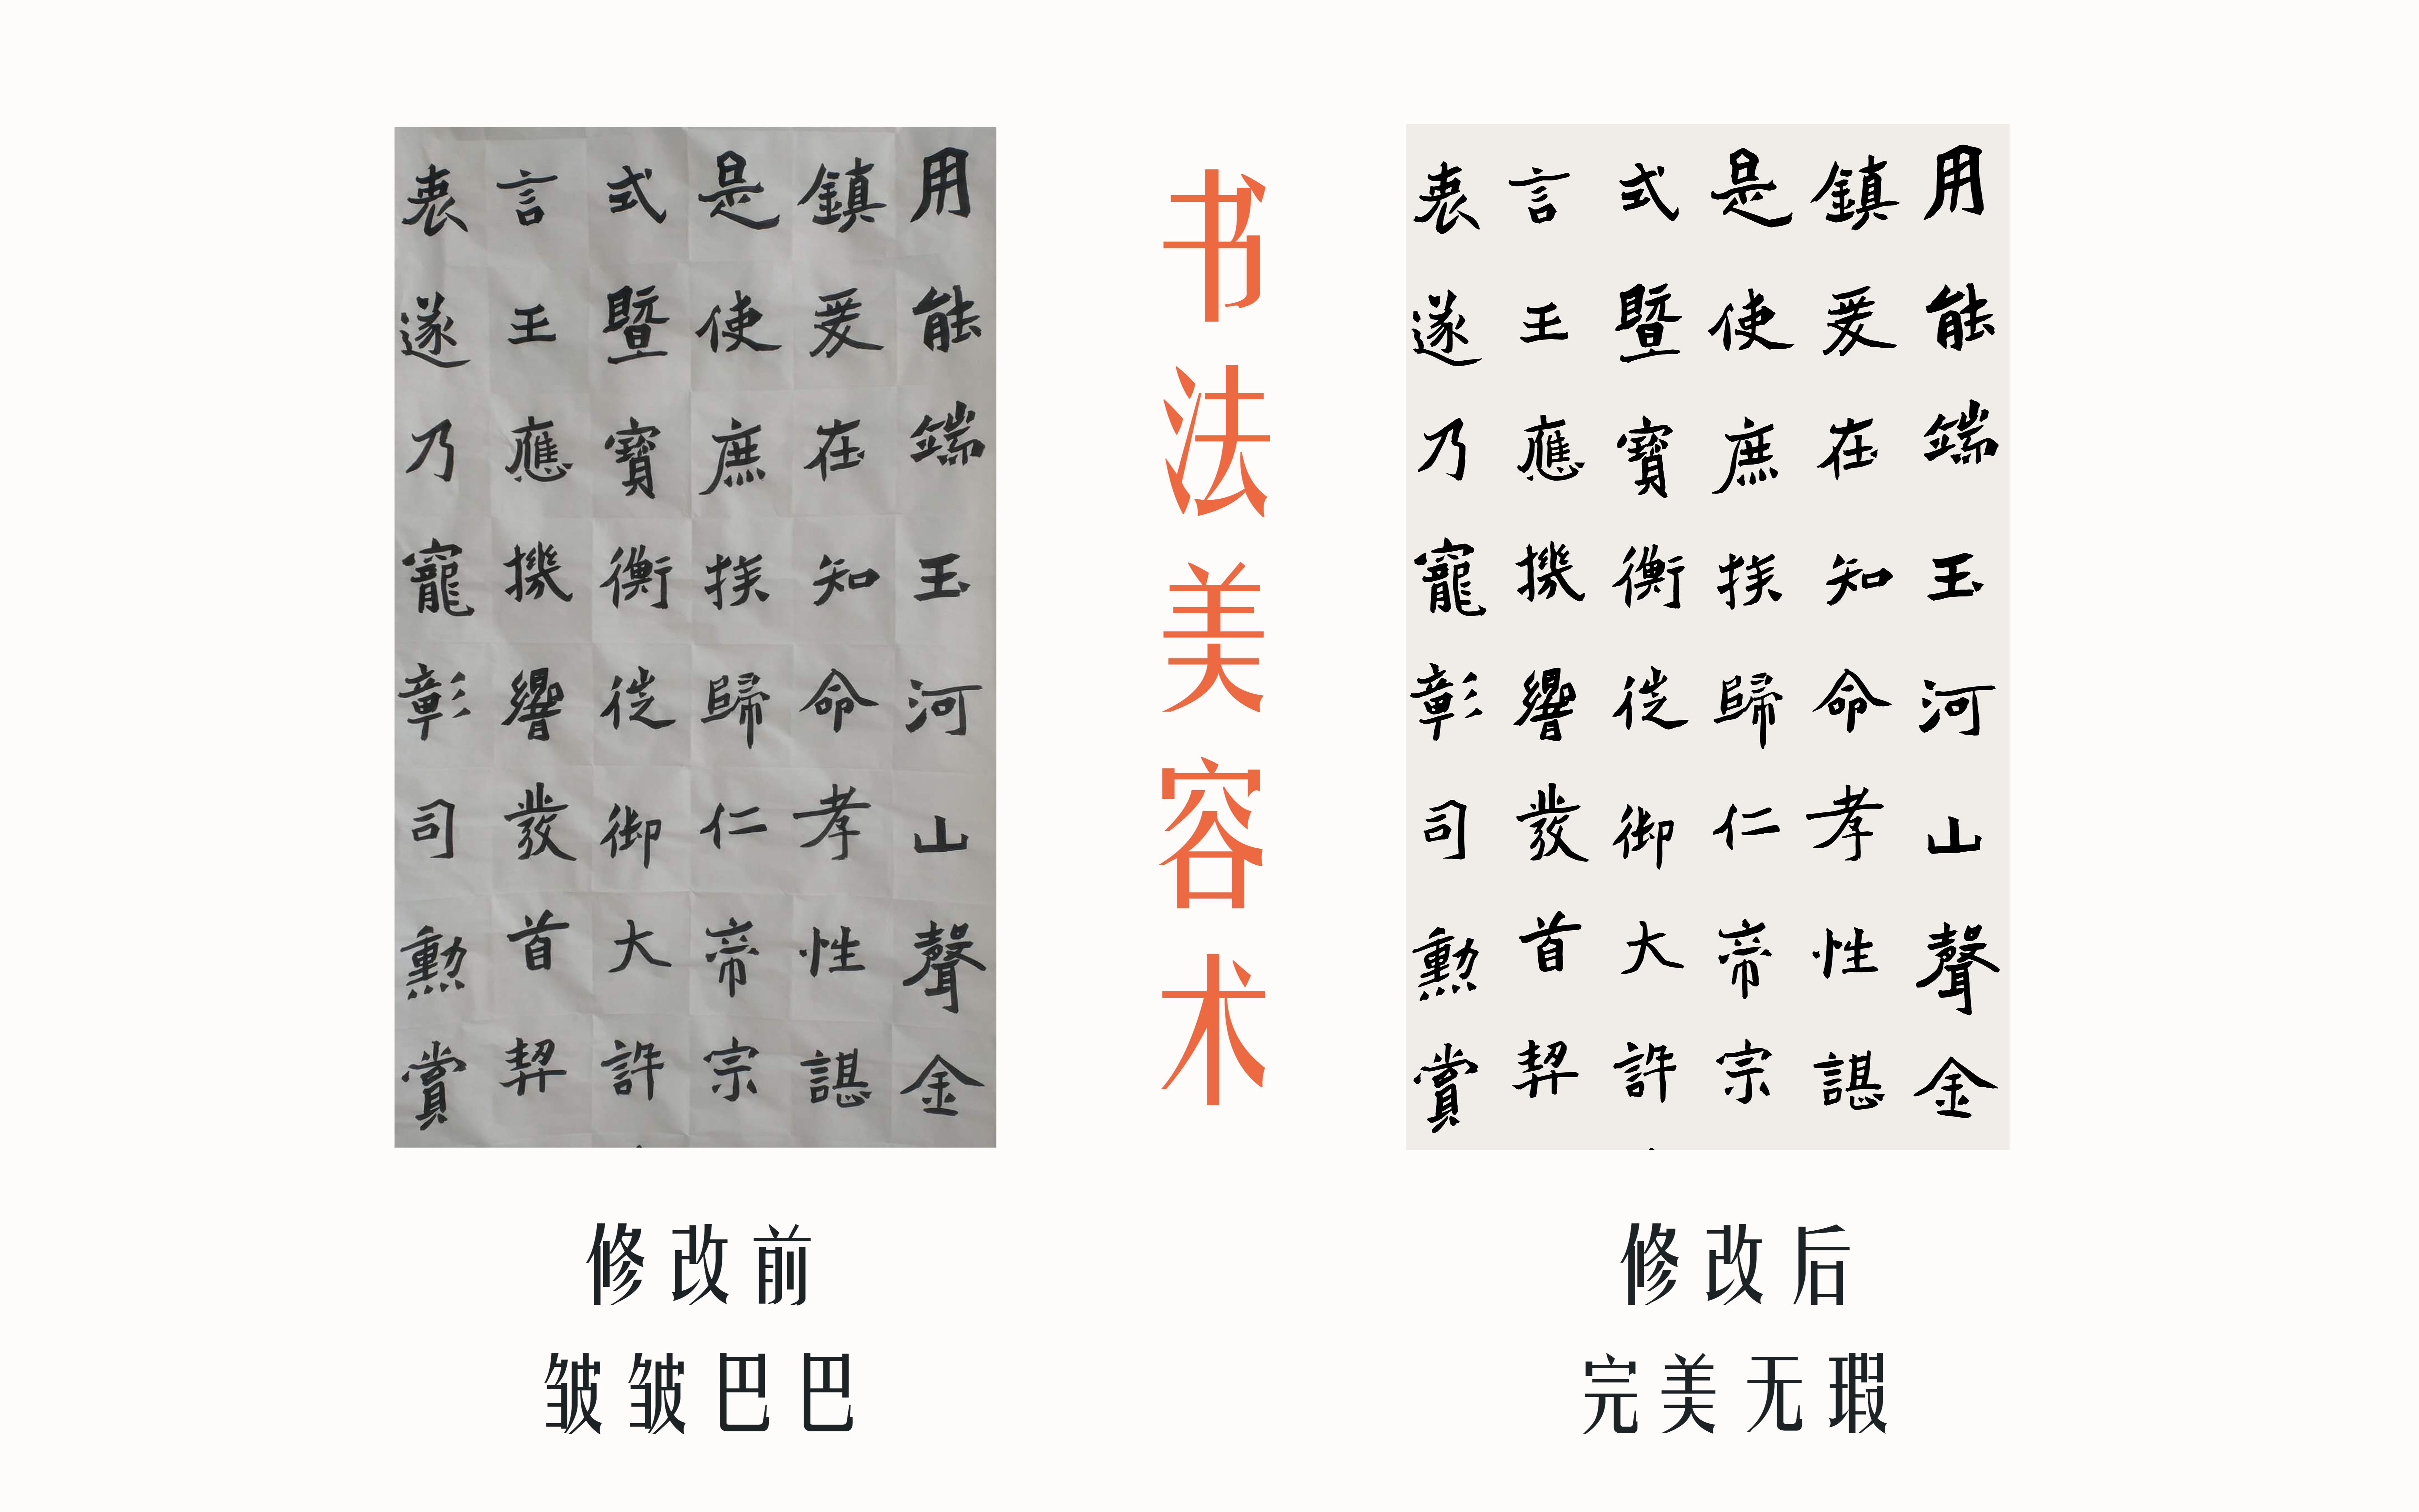 用能端玉河山聲金
鎮爰在知命孝性諶
是使庶族歸仁帝宗
式暨寶衡徙御大訊
言王應機響發首契
衷遂乃寵彰司勳賞
修改前
皱皱巴巴
书法美容术
用能端玉河山聲金
鎮爰在知命孝性諶
是使庶族歸仁帝宗
式暨寶衡徙御大訊
言王應機響發首契
衷遂乃寵彰司勳賞
修改后
完美无瑕